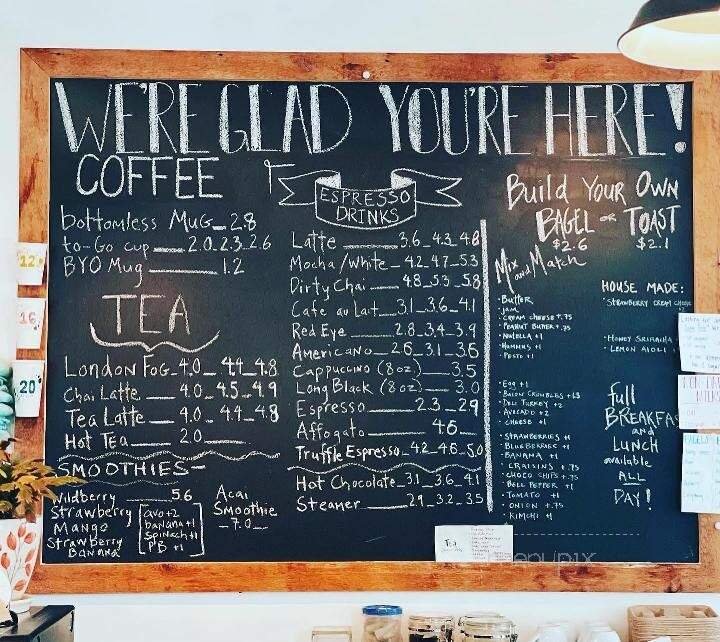 WE'RE GLAD YOU'RE HERE!
COFFEE
bottomless Mug 2.8
to-Go cup 2.0 2.3 2.6
BYO Mug 1.2
TEA
London Fog 4.0 4.4 4.8
Chai Latte 4.0 4.5 4.9
Tea Latte 4.0 4.4 4.8
Hot Tea 2.0
SMOOTHIES
Wildberry 5.6
Strawberry
Mango
Strawberry
Banana
avo +2
banana +1
spinach +1
PB +1
Acai
Smoothie
7.0
ESPRESSO
DRINKS
Latte 3.6 4.3 4.8
Mocha/White 4.2 4.7 5.3
Dirty Chai 4.8 5.3 5.8
Cafe au Lait 3.1 3.6 4.1
Red Eye 2.8 3.4 3.9
Americano 2.6 3.1 3.6
Cappuccino (8oz) 3.5
Long Black (8oz) 3.0
Espresso 2.3 2.9
Affogato 4.6
Truffle Espresso 4.2 4.6 5.0
Hot Chocolate 3.1 3.6 4.1
Steamer 2.9 3.2 3.5
Build Your Own
BAGEL or TOAST
$2.6 $2.1
Mix and Match
BUTTER
JAM
CREAM CHEESE +.75
PEANUT BUTTER +.75
NUTELLA +1
HUMMUS +1
PESTO +1
EGG +1
BACON CRUMBLES +1.5
DELI TURKEY +2
AVOCADO +2
CHEESE +1
STRAWBERRIES +1
BLUEBERRIES +1
BANANA +1
CRAISINS +.75
CHOCO CHIPS +.75
BELL PEPPER +1
TOMATO +1
ONION +.75
KIMCHI +1
HOUSE MADE:
STRAWBERRY CREAM CHEESE
HONEY SRIRACHA
LEMON AIOLI
full
BREAKFAS
and
LUNCH
available
ALL
DAY!
12
16
20
TEA
menupix